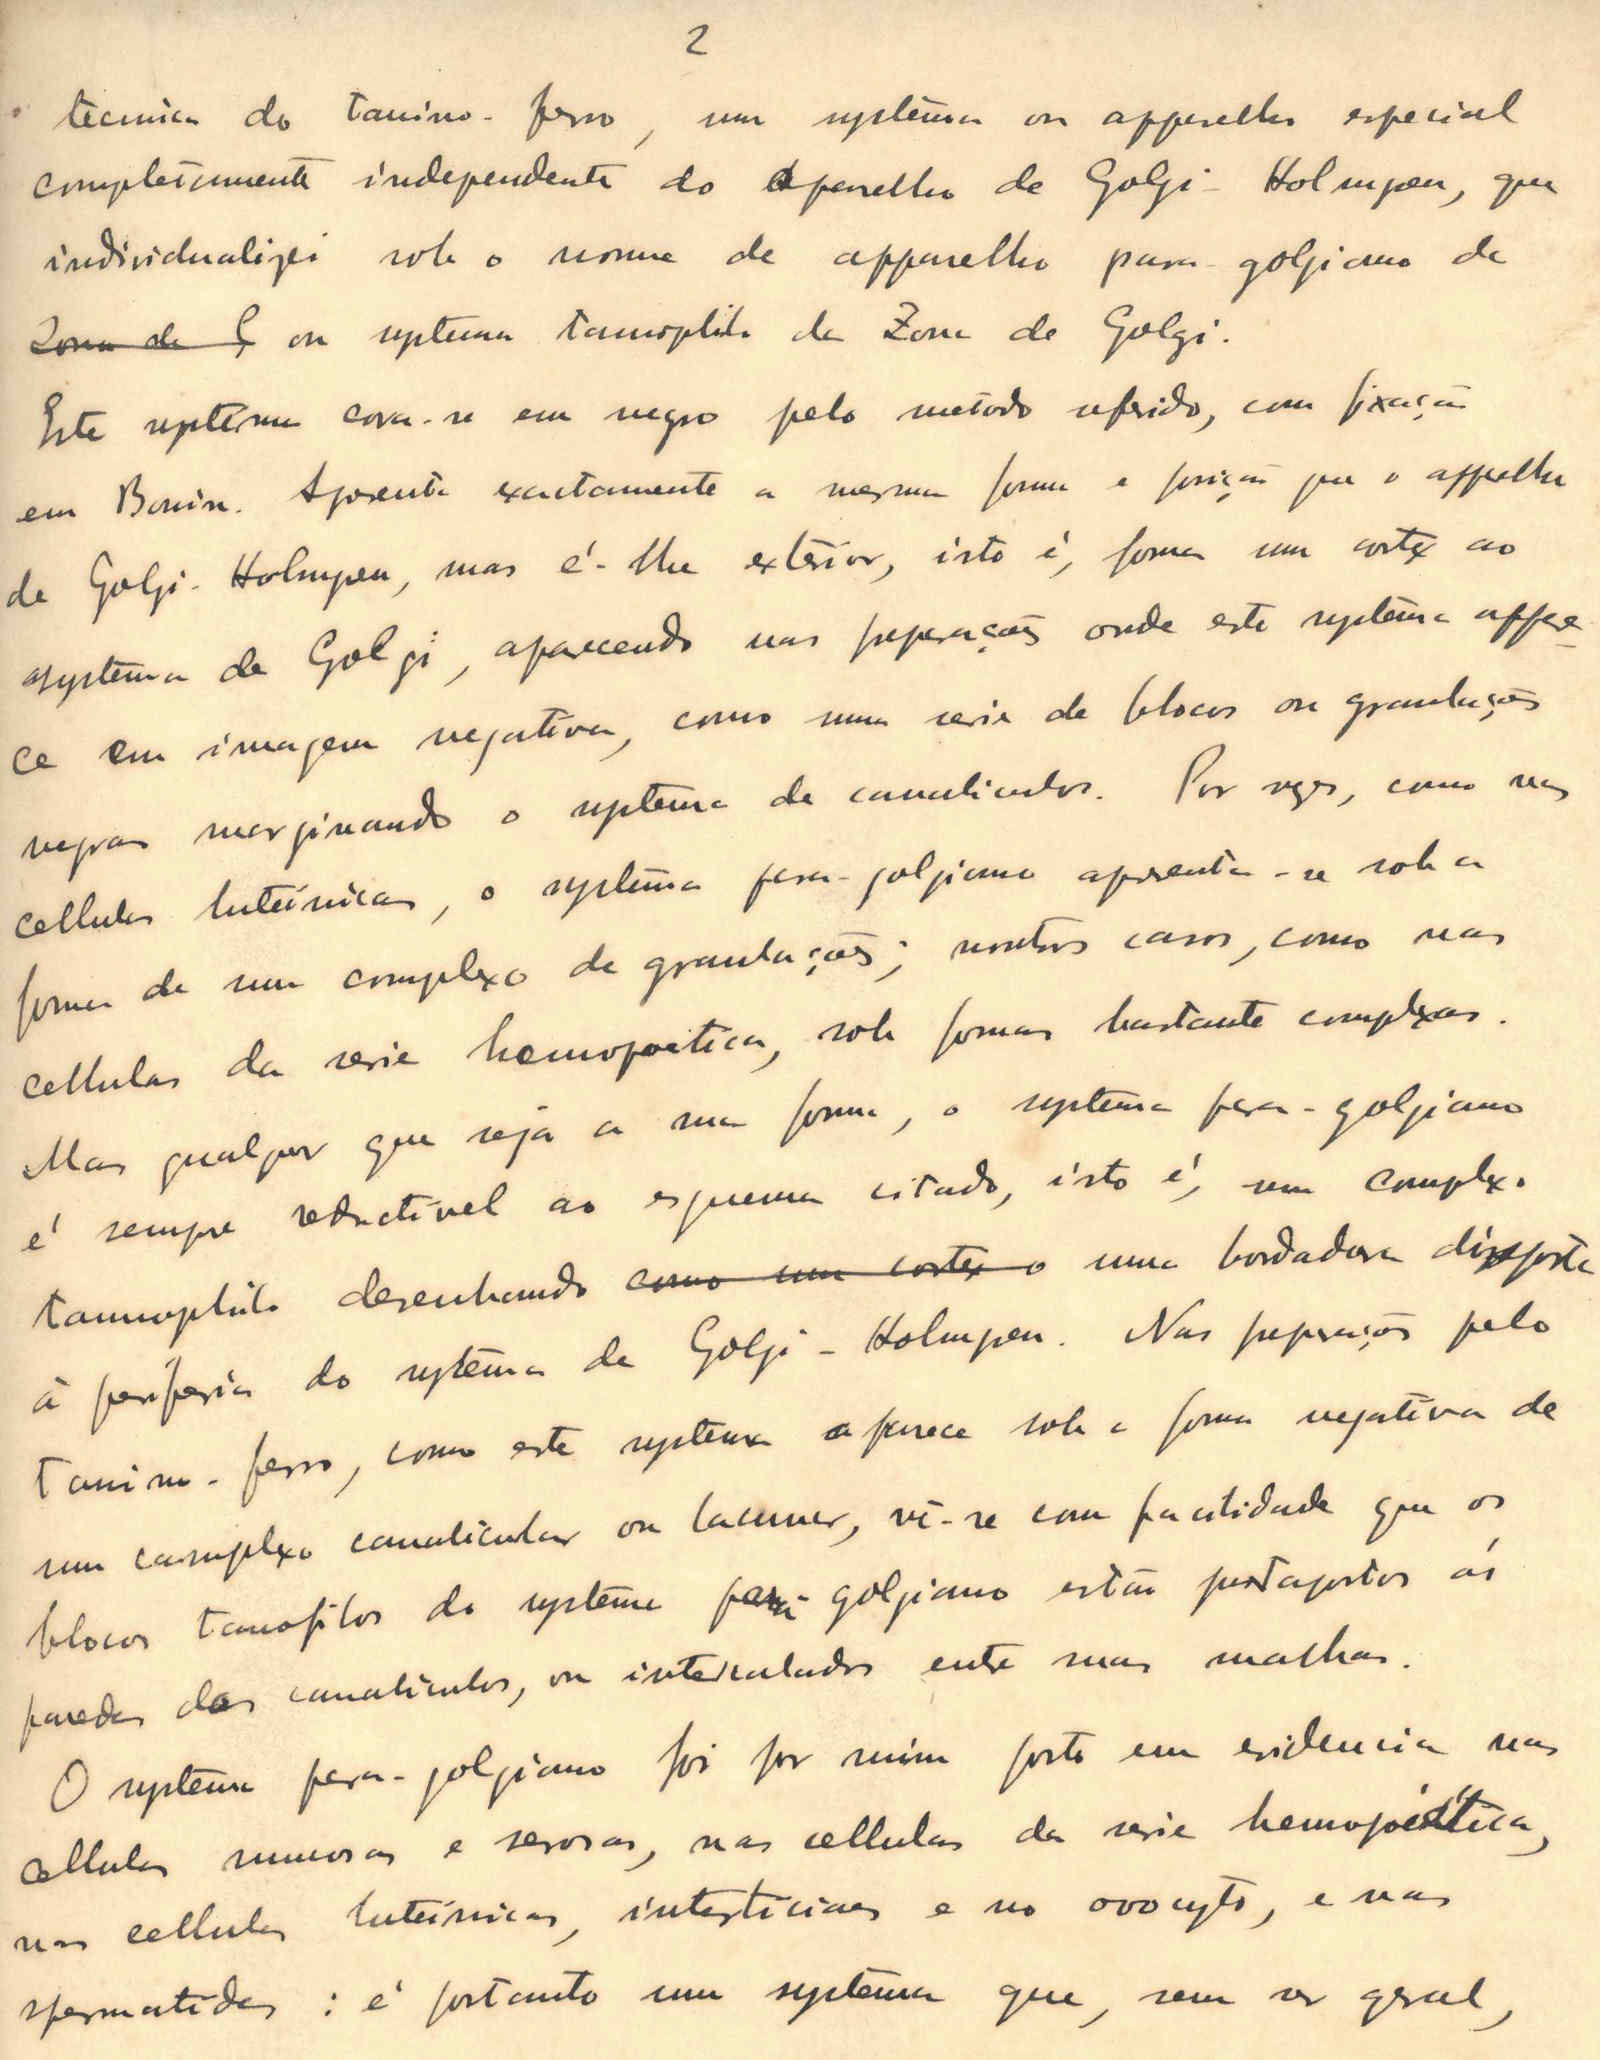 2
tecnica do tanino-ferro, um systema ou apparelho especial
completamente independente do aparelho de Golgi-Holmgren, que
individualizei sob o nome de apparelho para-golgiano da
Zona de G ou systema tannophilo da Zona de Golgi.
Este systema cora-se em negro pelo metodo referido, com fixação
em Bouin. Apresenta exactamente a mesma forma e posição que o apparelho
de Golgi-Holmgren, mas é-lhe exterior, isto é, forma um cortex ao
systema de Golgi, aparecendo nas preparações onde este systema appare-
ce em imagem negativa, como uma serie de blocos ou granulações
negras marginando o systema de canaliculos. Por vezes, como nas
cellulas luteinicas, o systema para-golgiano apresenta-se sob a
forma de um complexo de granulações; noutros casos, como nas
cellulas da serie hemopoetica, sob formas bastante complexas.
Mas qualquer que seja a sua forma, o systema para-golgiano
é sempre reductivel ao esquema citado, isto é, um complexo
tannophilo desenhando como um cortex o uma bordadura disposta
à periferia do systema de Golgi-Holmgren. Nas preparações pelo
tanino-ferro, como este systema aparece sob a forma negativa de
um complexo canalicular ou lacunar, vê-se com facilidade que os
blocos tanofilos do systema para-golgiano estão justapostos ás
paredes dos canaliculos, ou intercalados entre suas malhas.
O systema para-golgiano foi por mim posto em evidencia nas
cellulas mucosas e serosas, nas cellulas da serie hemopoiética,
nas cellulas luteinicas, intersticiaes e no ovocyto, e nas
spermatides: é portanto um systema que, sem ser geral,